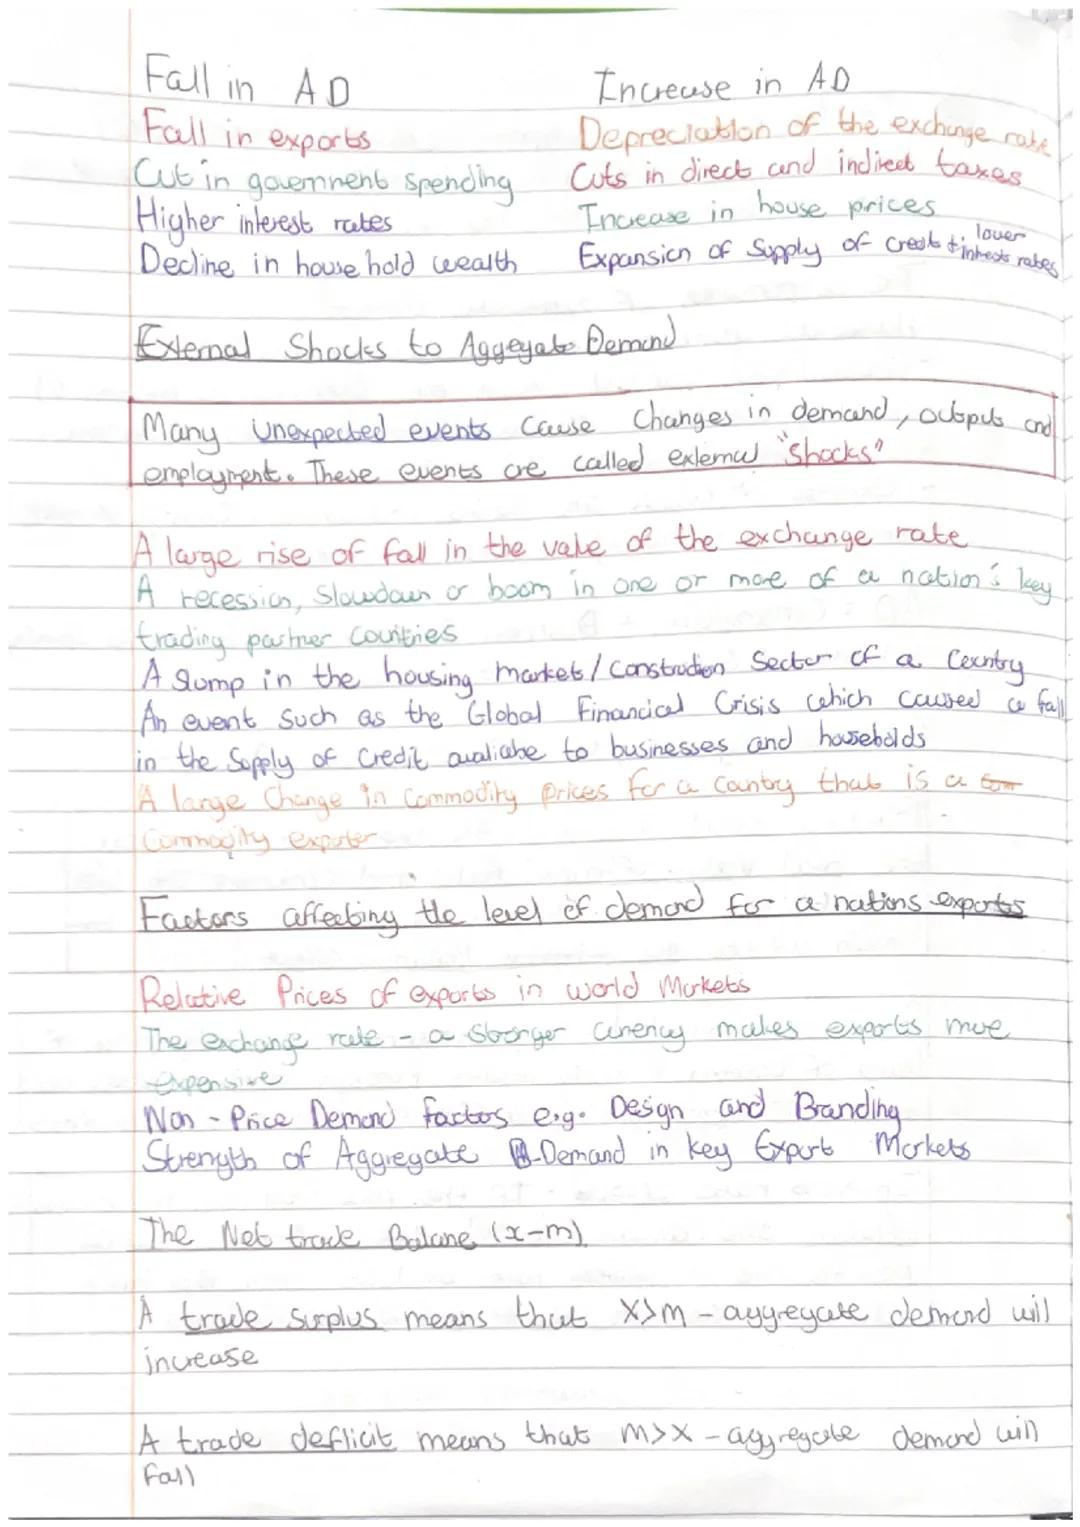 Fall in AD
Increase in AD
Fall in exports
Depreciation of the exchange rate
Cut in government spending
Cuts in direct and indirect taxes
Higher interest rates
Increase in house prices
Decline in household wealth
Expansion of Supply of credit + lower interests rates
External Shocks to Aggeyate Demand
Many unexpected events cause changes in demand, output and
employment. These events are called external "shocks"
A large rise of fall in the value of the exchange rate
A recession, Slowdown or boom in one or more of a nation's key
trading partner countries
A slump in the housing market/construction Sector of a Country
An event such as the Global Financical Crisis which caused a fall
in the Supply of Credit avaliabe to businesses and households
A large Change in Commodity prices for a Country that is a
Commodity exporter
Factors affecting the level of demand for a nations exports
Relative Prices of exports in world Markets
The exchange rate - a stronger currency makes exports more
expensive
Non-Price Demand factors e.g. Design and Branding
Strength of Aggregate Demand in key Export Markets
The Net trade Balance (x-m)
A trade surplus means that X>m - aggregate demand will
increase
A trade deflicit means that m>x - aggregate demand will
fall